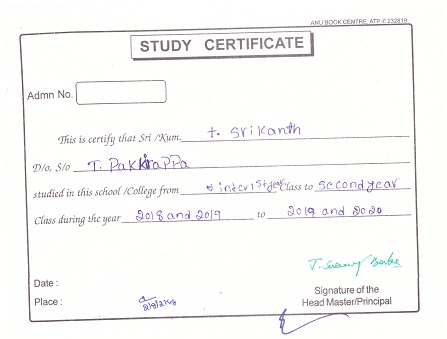 ANU BOOK CENTRE, ATP ✆: 232819
STUDY CERTIFICATE
Admn No.
This is certify that Sri /Kum. t. Srikanth
D/o, S/o T. Pakkirappa
studied in this school /College from inter 1st year Class to second year
Class during the year 2018 and 2019 to 2019 and 2020
Date :
Place :
Signature of the
Head Master/Principal